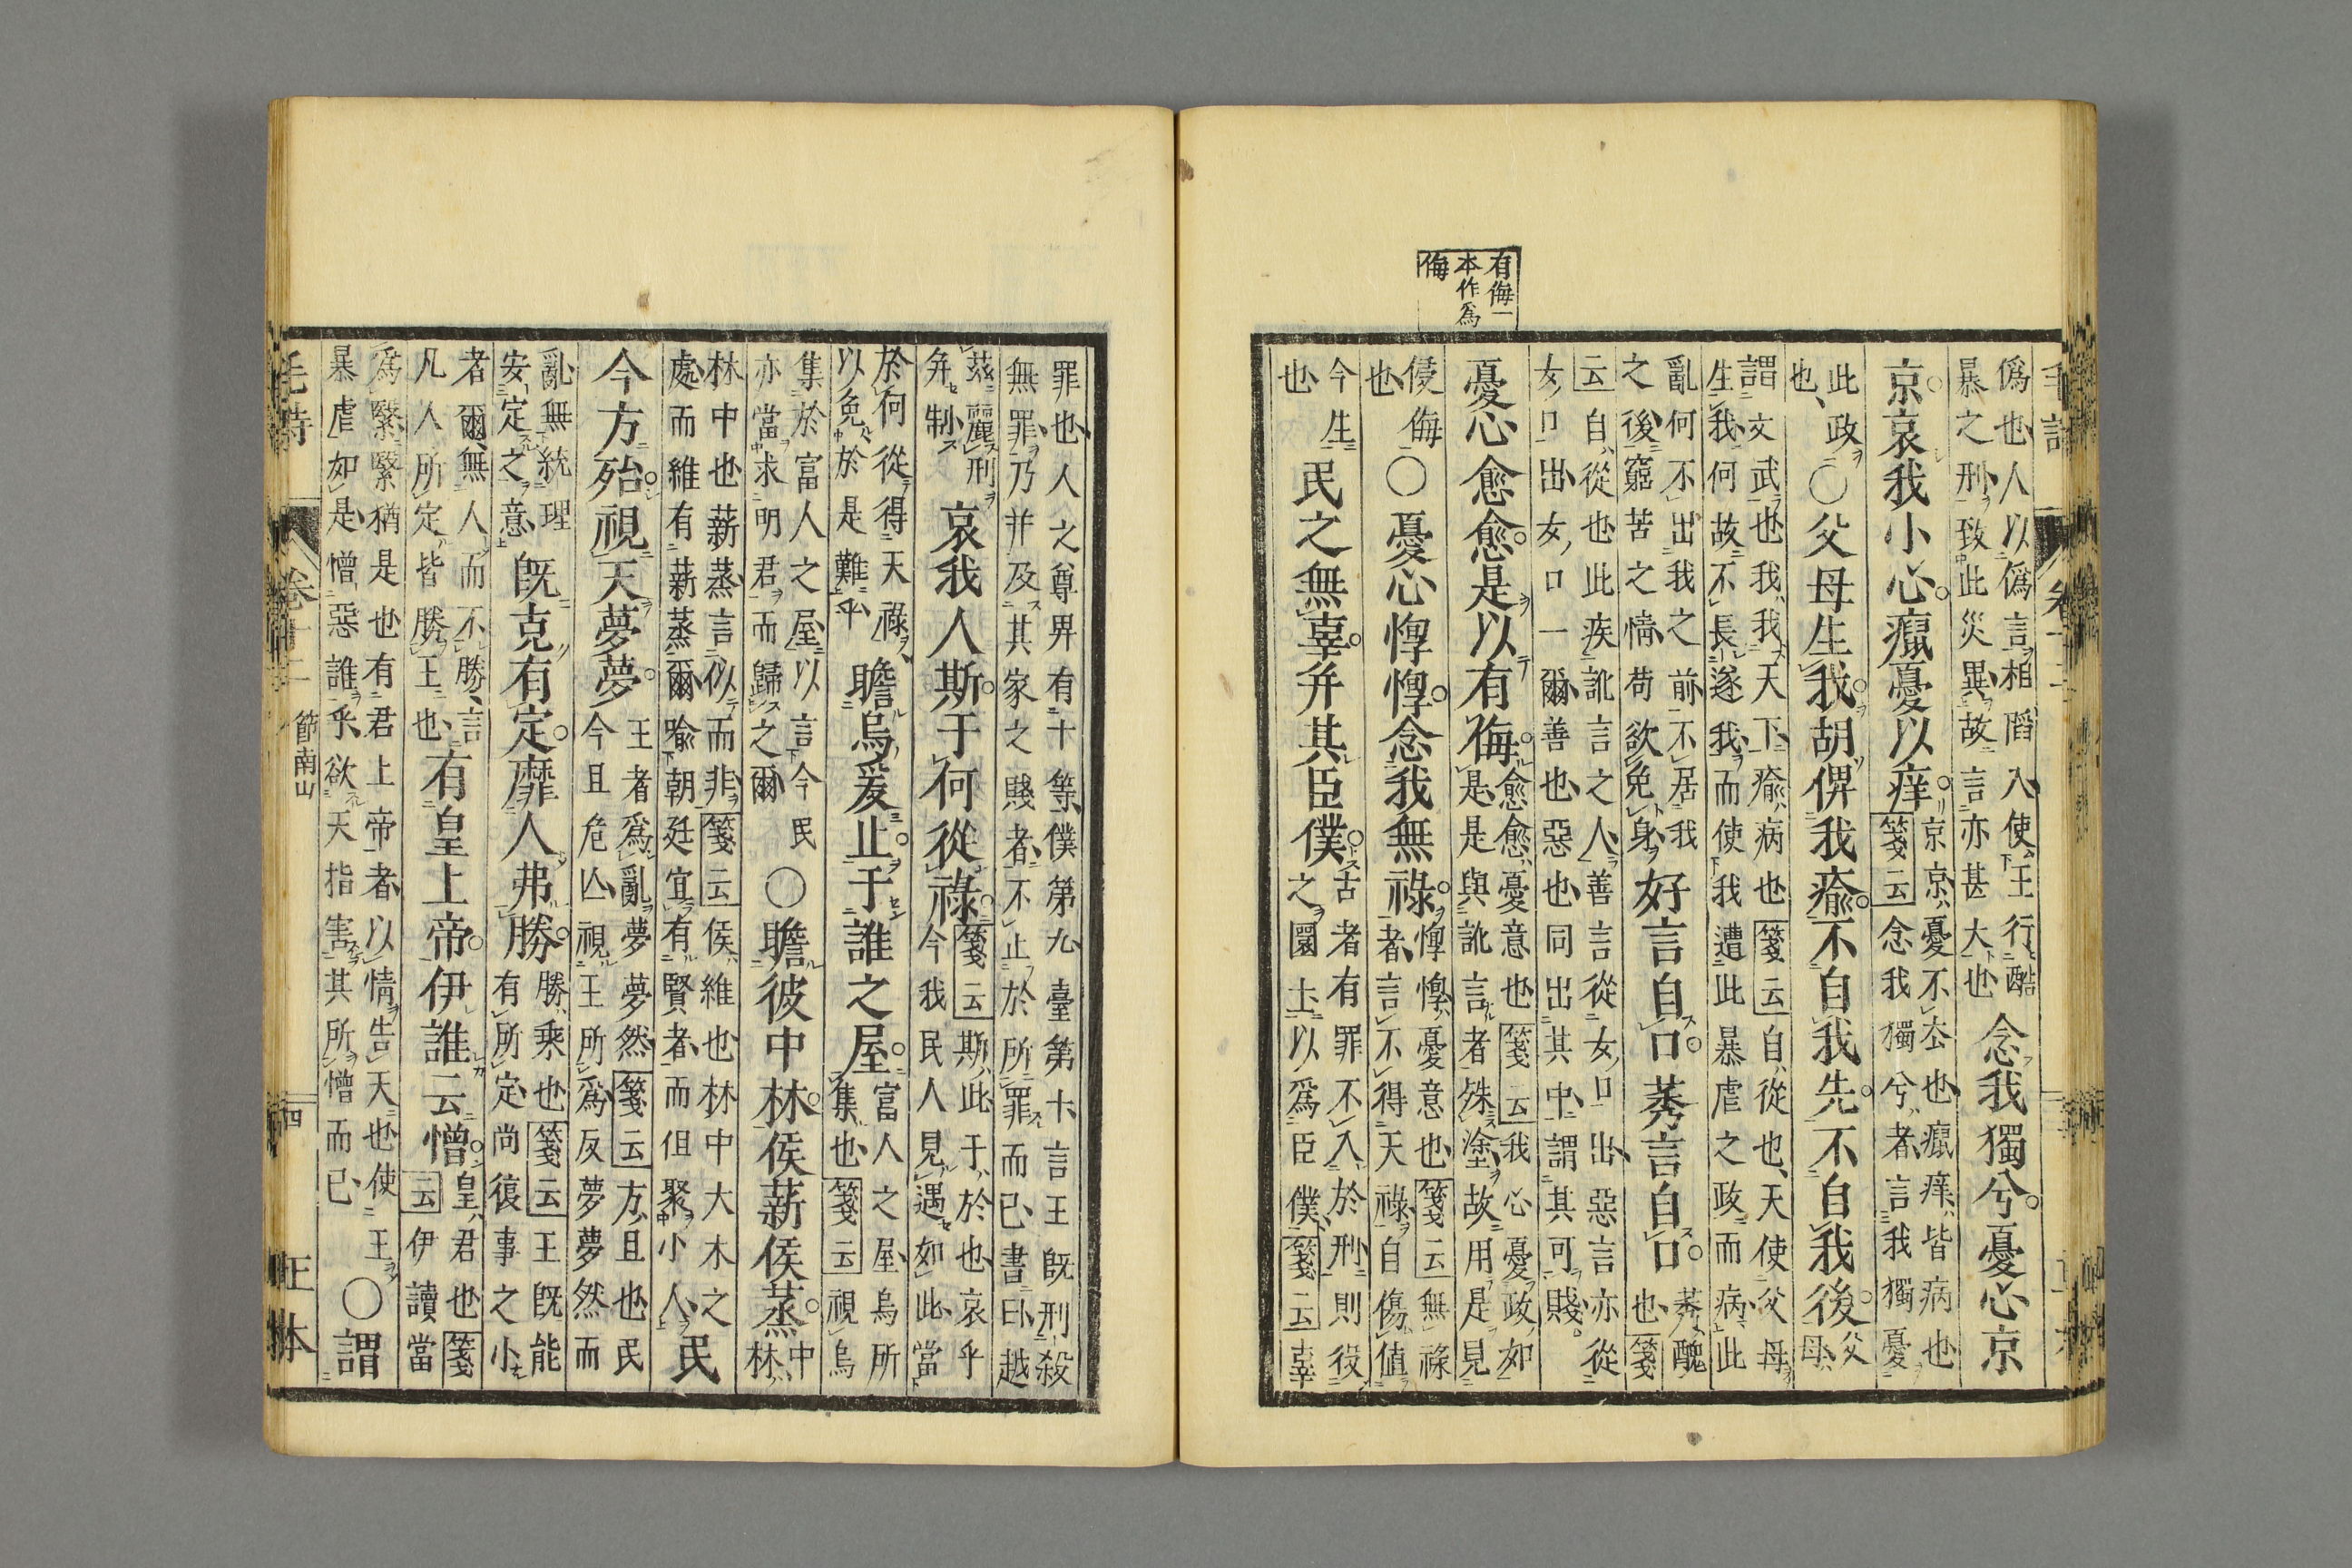 有侮一
本作為
侮
僞也人以僞言相䧟入使王行酷
暴之刑致此災異故言亦甚大也
念我獨兮憂心京
京哀我小心癙憂以痒
京京憂不去也癙痒皆病也
箋云念我獨兮者言我獨憂
此政
也
○父母生我胡俾我瘉不自我先不自我後
父
母
謂文武也我我天下瘉病也箋云自從也天使父母
生我何故不長遂我而使我遭此暴虐之政而病此
亂何不出我之前不居我
之後窮苦之情苟欲免身
好言自口莠言自口
莠醜
也箋
云自從也此疾訛言之人善言從女口出惡言亦從
女口出女口一爾善也惡也同出其中謂其可賤
憂心愈愈是以有侮
愈愈憂意也箋云我心憂政如
是是與訛言者殊塗故用是見
侵侮
也
○憂心惸惸念我無祿
惸惸憂意也箋云無祿
者言不得天祿自傷值
今生
也
民之無辜并其臣僕
古者有罪不入於刑則役
之圜土以爲臣僕箋云辜
罪也人之尊卑有十等僕第九臺第十言王既刑殺
無罪乃并及其家之賤者不止於所罪而已書曰越
茲麗刑
并制
哀我人斯于何從祿
箋云斯此于於也哀乎
今我民人見遇如此當
於何從得天祿
以免於是難乎
瞻烏爰止于誰之屋
富人之屋烏所
集也箋云視烏
集於富人之屋以言今民
亦當求明君而歸之爾
○瞻彼中林侯薪侯蒸
中
林
林中也薪蒸言似而非箋云侯維也林中大木之
處而維有薪蒸爾喻朝廷宜有賢者而但聚小人
民
今方殆視天夢夢
王者爲亂夢夢然箋云方且也民
今且危亾視王所爲反夢夢然而
亂無統理
安定之意
既克有定靡人弗勝
勝乘也箋云王既能
有所定尚復事之小
者爾無人而不勝言
凡人所定皆勝王也
有皇上帝伊誰云憎
皇君也箋
云伊讀當
爲繄繄猶是也有君上帝者以情告天也使王
暴虐如是憎惡誰乎欲天指害其所憎而已
○謂
毛詩
卷十二
節南山
四